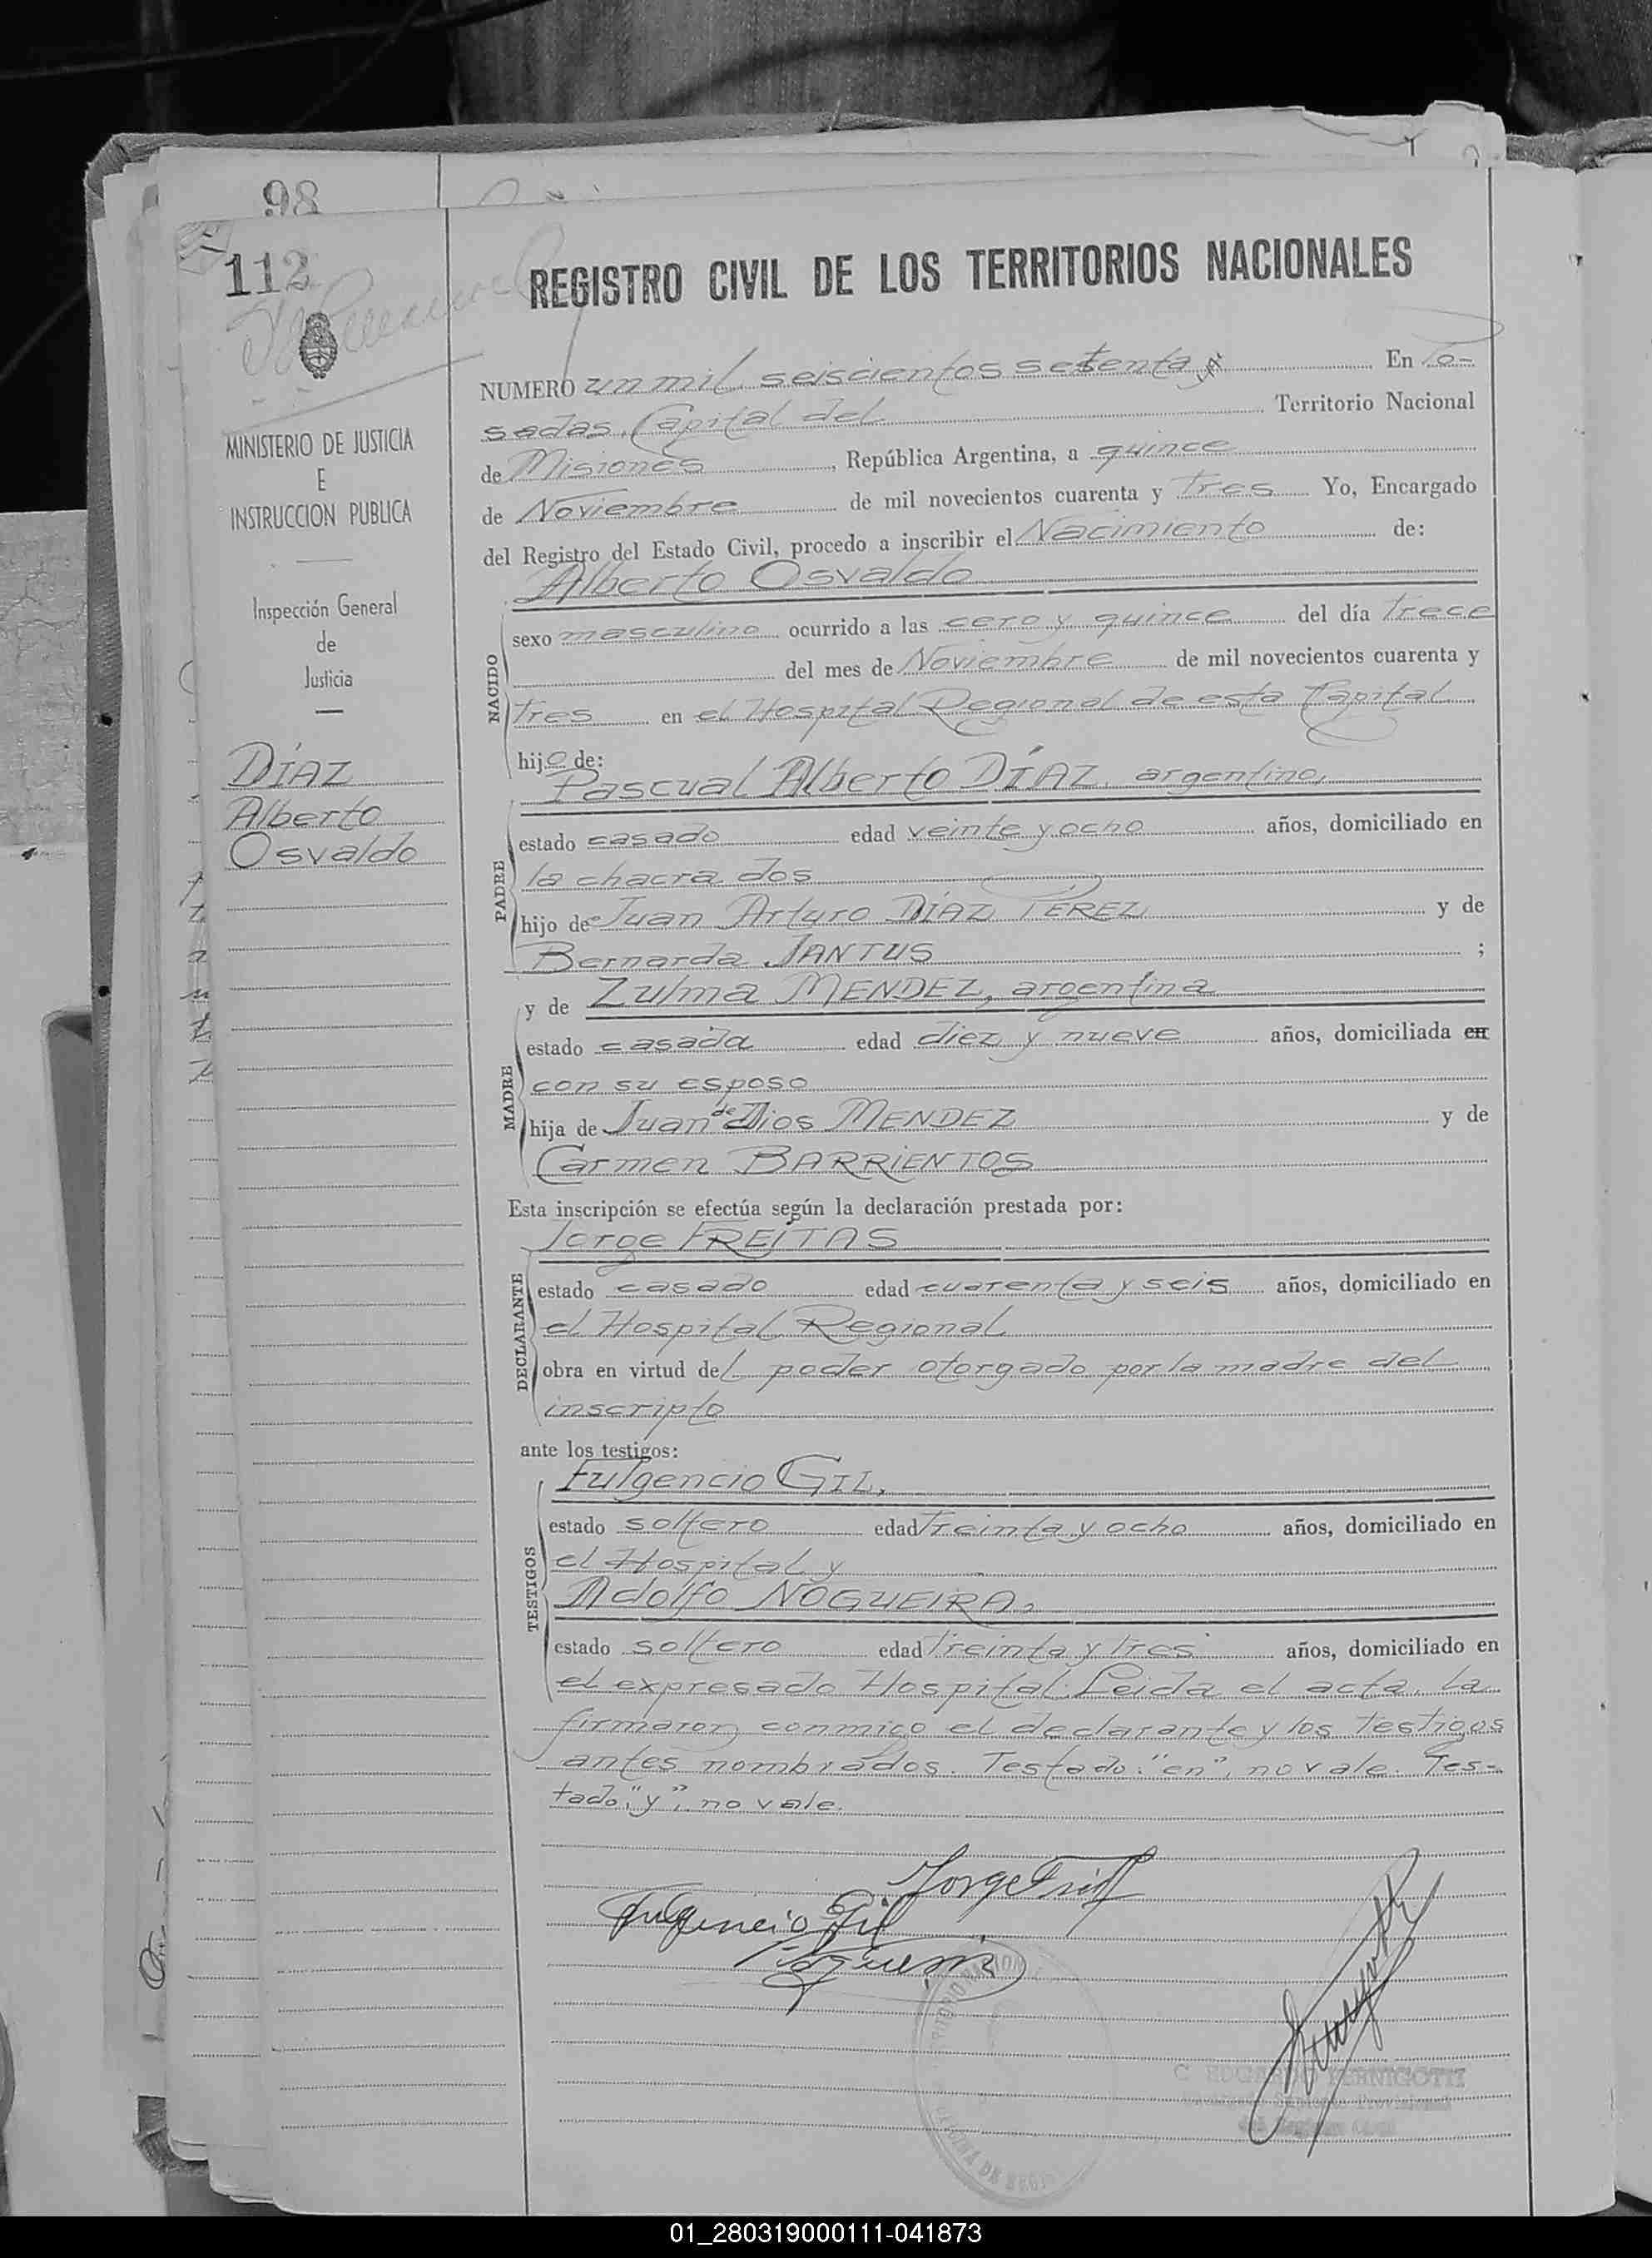 98
112
REGISTRO CIVIL DE LOS TERRITORIOS NACIONALES
MINISTERIO DE JUSTICIA
E
INSTRUCCION PUBLICA
Inspección General
de
Justicia
DÍAZ
Alberto
Osvaldo
NUMERO un mil seiscientos setenta En Po-
sadas, Capital del Territorio Nacional
de Misiones, República Argentina, a quince
de Noviembre de mil novecientos cuarenta y tres Yo, Encargado
del Registro del Estado Civil, procedo a inscribir el Nacimiento de:
Alberto Osvaldo
NACIDO
sexo masculino ocurrido a las cero y quince del día trece
del mes de Noviembre de mil novecientos cuarenta y
tres en el Hospital Regional de esta Capital
hijo de:
Pascual Alberto DÍAZ, argentino,
PADRE
estado casado edad veinte y ocho años, domiciliado en
la chacra dos
hijo de Juan Arturo DÍAZ PEREZ y de
Bernarda JANTUS ;
y de Zulma MENDEZ, argentina
MADRE
estado casada edad diez y nueve años, domiciliada en
con su esposo
hija de Juan de Dios MENDEZ y de
Carmen BARRIENTOS
Esta inscripción se efectúa según la declaración prestada por:
Jorge FREITAS
DECLARANTE
estado casado edad cuarenta y seis años, domiciliado en
el Hospital Regional
obra en virtud del poder otorgado por la madre del
inscripto
ante los testigos:
Fulgencio GIL,
TESTIGOS
estado soltero edad treinta y ocho años, domiciliado en
el Hospital y
Adolfo NOGUEIRA,
estado soltero edad treinta y tres años, domiciliado en
el expresado Hospital. Leida el acta, la
firmaron conmigo el declarante y los testigos
antes nombrados. Testado: "en", no vale. Tes-
tado: "y", no vale.
Fulgencio Gil
01_280319000111-041873